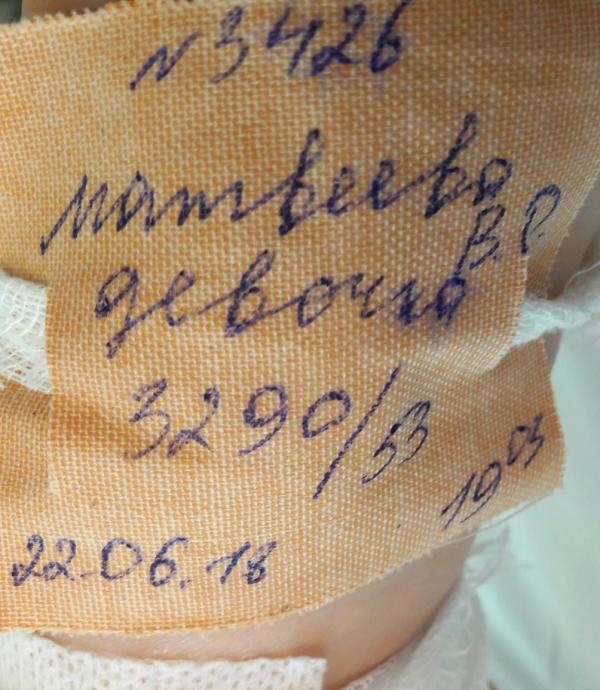 N 3426
Матвеева
В.Р.
девочка
3290/53
19 05
22.06.18